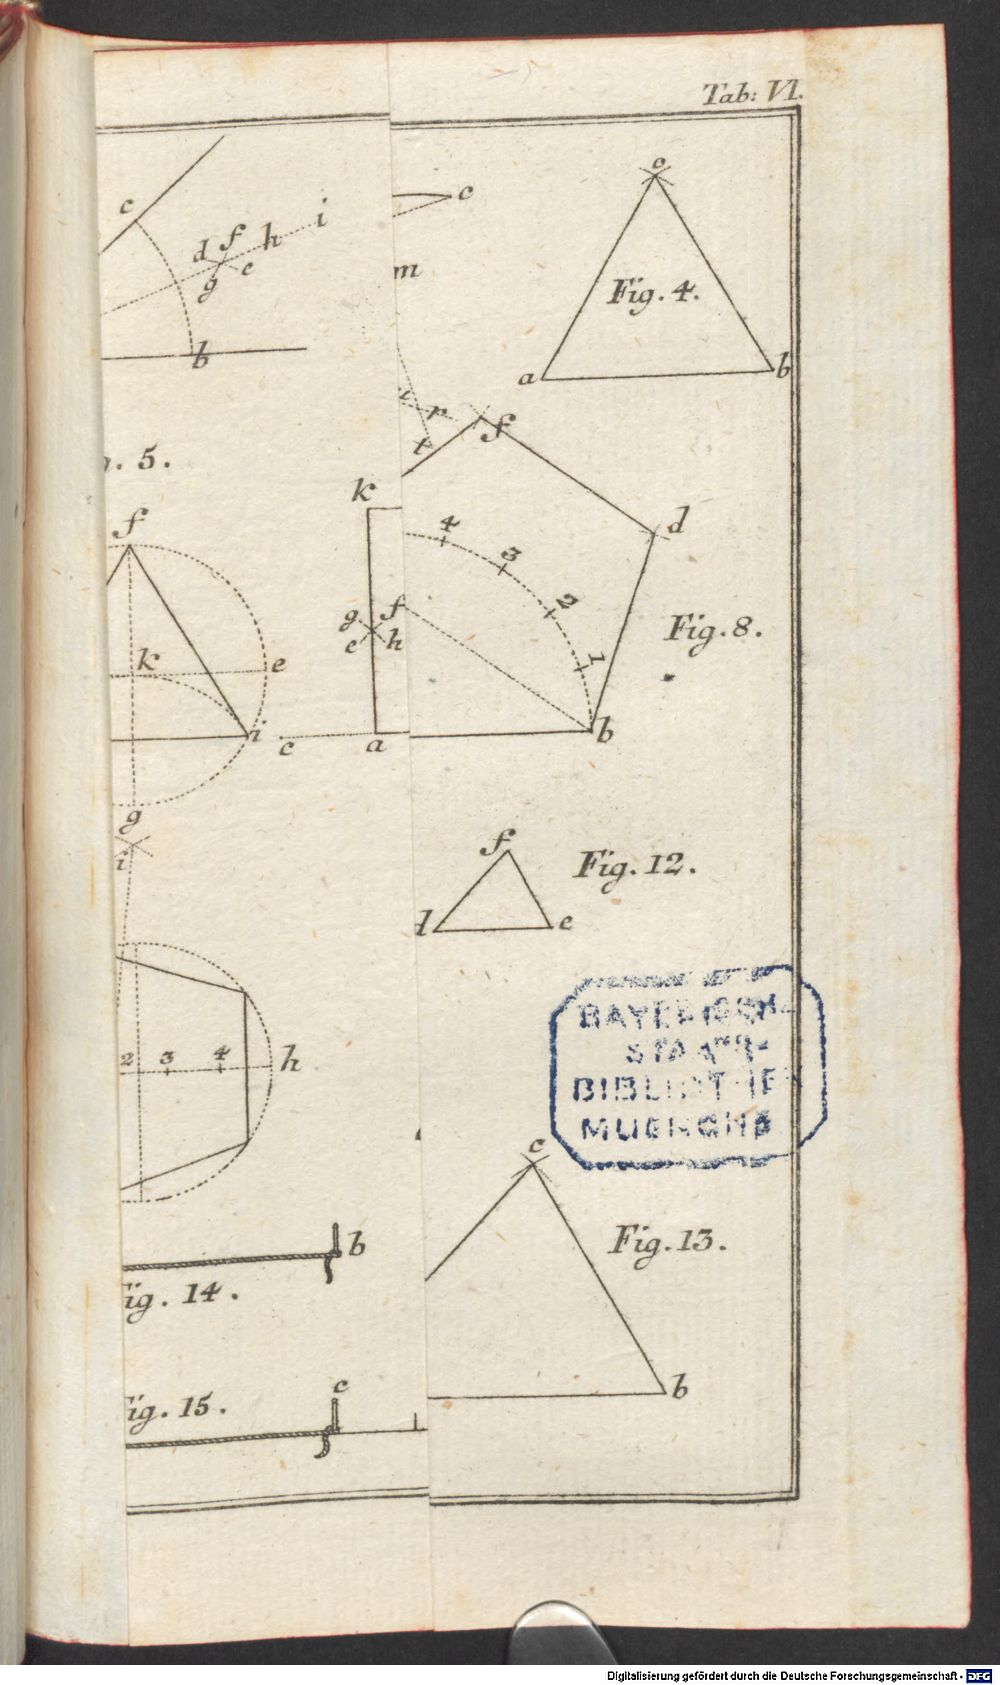 Tab: VI.
c
c
c
i
d f h
g e
m
Fig. 4.
b
a
b
r
f
t
5.
k
d
f
4
3
2
g f
e h
Fig. 8.
1
k
e
i
c
a
b
g
i
f
Fig. 12.
d
e
BAYERISCHE
STAATS-
BIBLIOTHEK
MUENCHEN
2 3 4 h
c
Fig. 13.
b
ig. 14.
b
c
ig. 15.
Digitalisierung gefördert durch die Deutsche Forschungsgemeinschaft - DFG